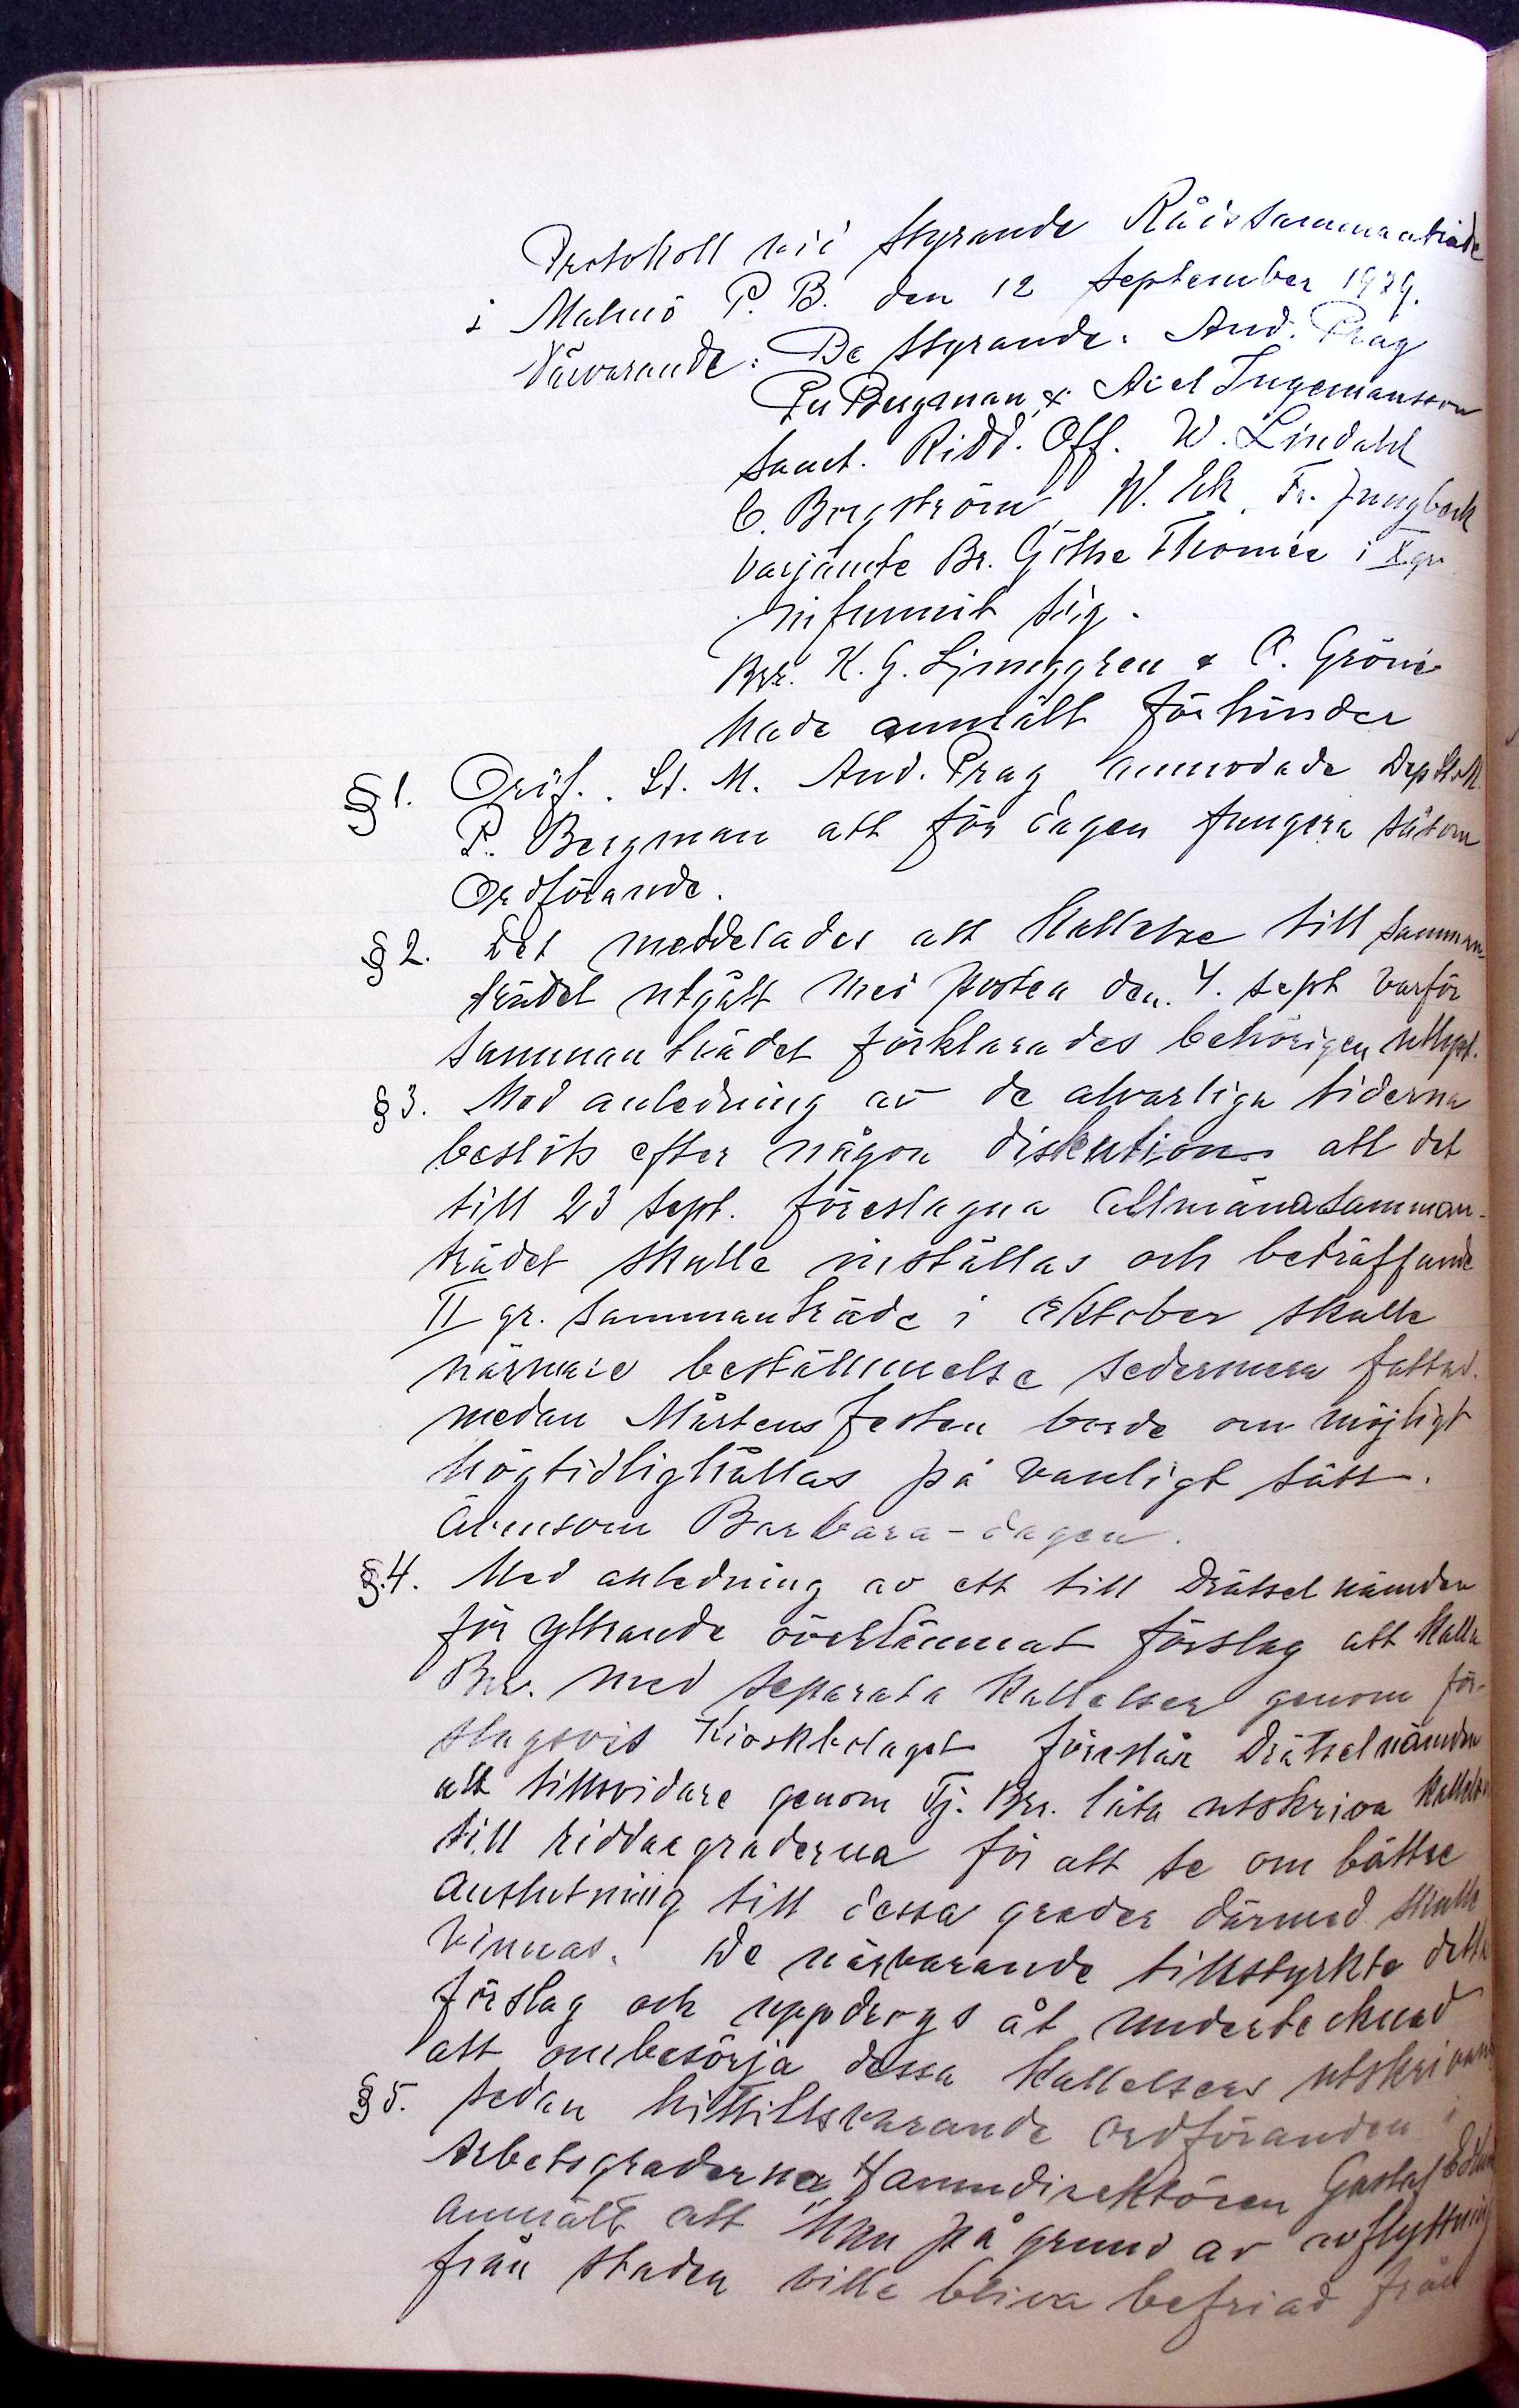 Protokoll vid styrande Rådssammanträde
i Malmö P. B. den 12 September 1939.
Närvarande: De styrande. And. Prag
Per Bergman & Axel Ingemansson
samt. Ridd. Off. W. Lindahl
C. Bergström, W. Ek, Fr. Jungbeck
varjämte Br. Göthe Thomée i X gr.
infunnit sig.
Brr. K. G. Ljunggren & C. Grönvi
hade anmält förhinder
§ 1. Ordf. St. M. And. Prag anmodade Dep St. M.
P. Bergman att för dagen fungera såsom
Ordförande.
§ 2. Det meddelades att kallelse till samman-
trädet utgått med posten den 4. sept varför
sammanträdet förklarades behörigen utlyst.
§ 3. Med anledning av de alvarliga tiderna
beslöts efter någon diskution att det
till 23 sept. föreslagna allmänna samman-
trädet skulle inställas och beträffande
II gr. sammanträde i oktober skulle
närmare bestämmelse sedermera fattas.
medan Mårtensfesten borde om möjligt
högtidlighållas på vanligt sätt.
Ävensom Barbara-dagen.
§. 4. Med anledning av ett till Drätselnämden
för yttrande överlämnat förslag att kalla
Brr. med separata kallelser genom för-
slagsvis Kioskbolaget föreslår Drätselnämden
att tillsvidare genom Tj. Brr. låta utskriva kallelser
till riddaregraderna för att se om bättre
anslutning till dessa grader därmed skulle
vinnas. De närvarande tillstyrkte detta
förslag och uppdrogs åt undertecknad
att ombesörja dessa kallelsers utskrivan
§ 5. Sedan hittillsvarande ordföranden i
Arbetsgraderna Hamndirektören Gustaf
anmält att han på grund av avflyttning
från staden ville bliva befriad från